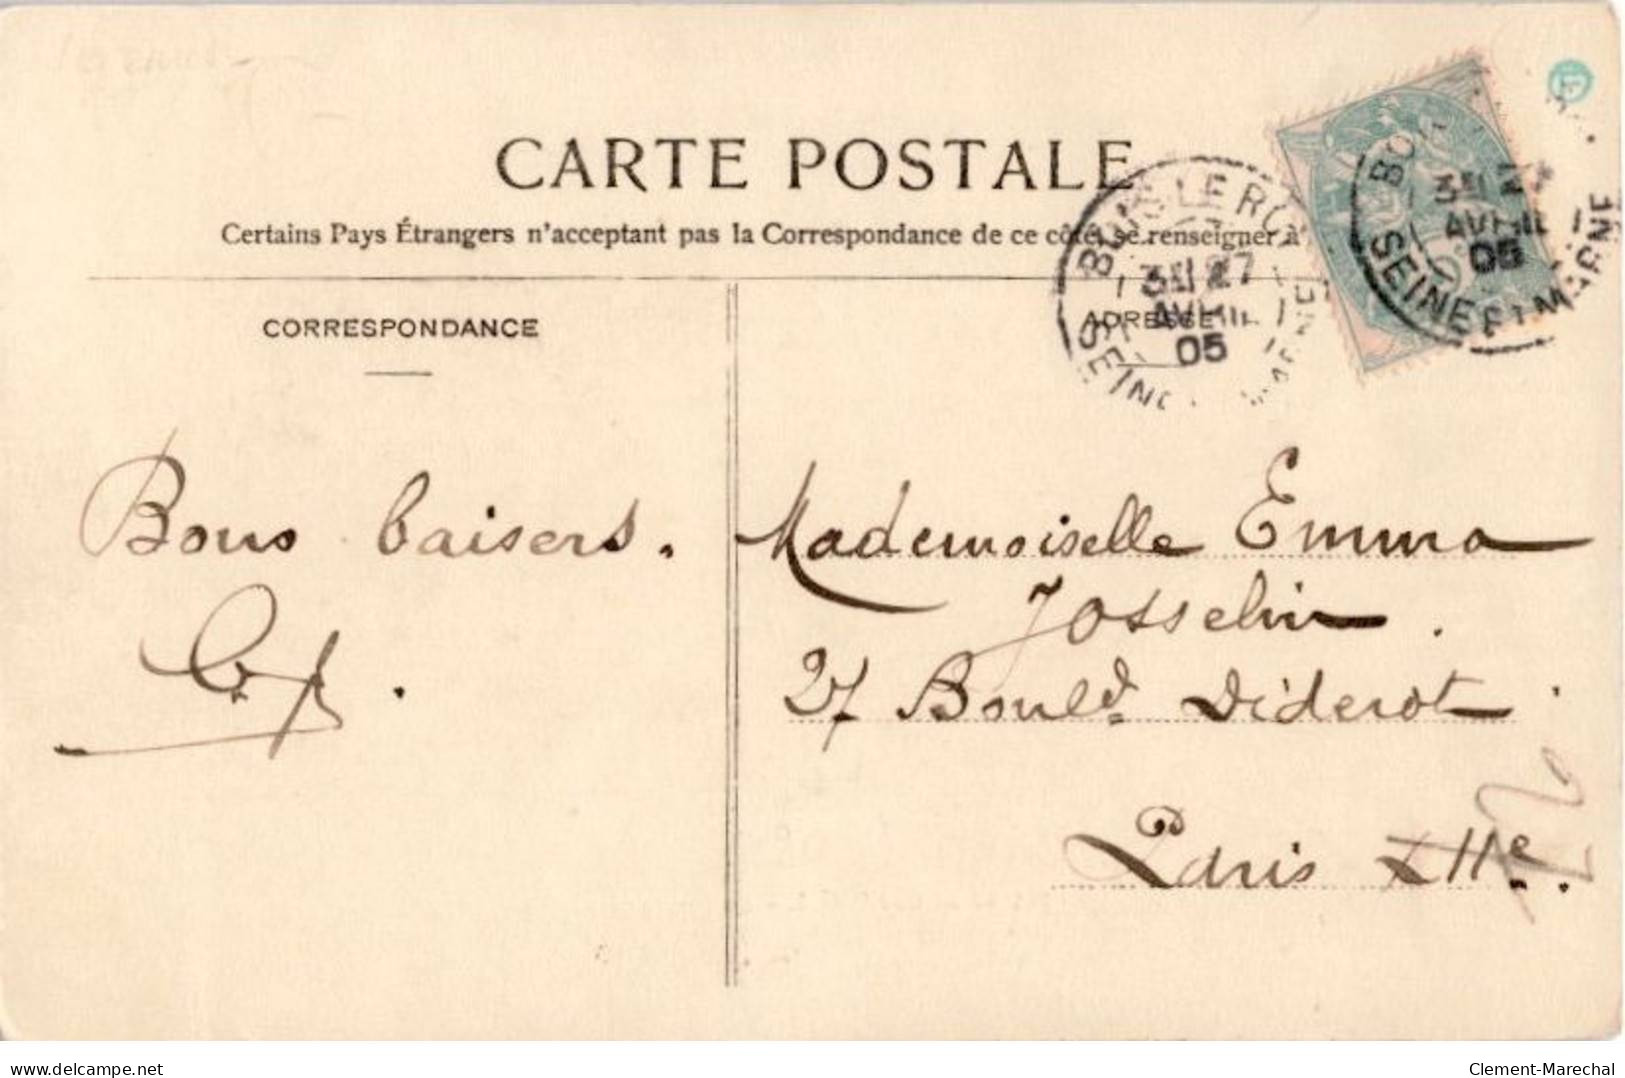 CARTE POSTALE
Certains Pays Étrangers n'acceptant pas la Correspondance de ce côté, se renseigner à
CORRESPONDANCE
ADRESSE
27
AVRIL
05
AVRIL
05
SEINE ET MARNE
Bons baisers.
Mademoiselle Emma
Josselin.
27 Boul.d Diderot.
Paris XIIe.
12
delcampe.net
Clement-Marechal